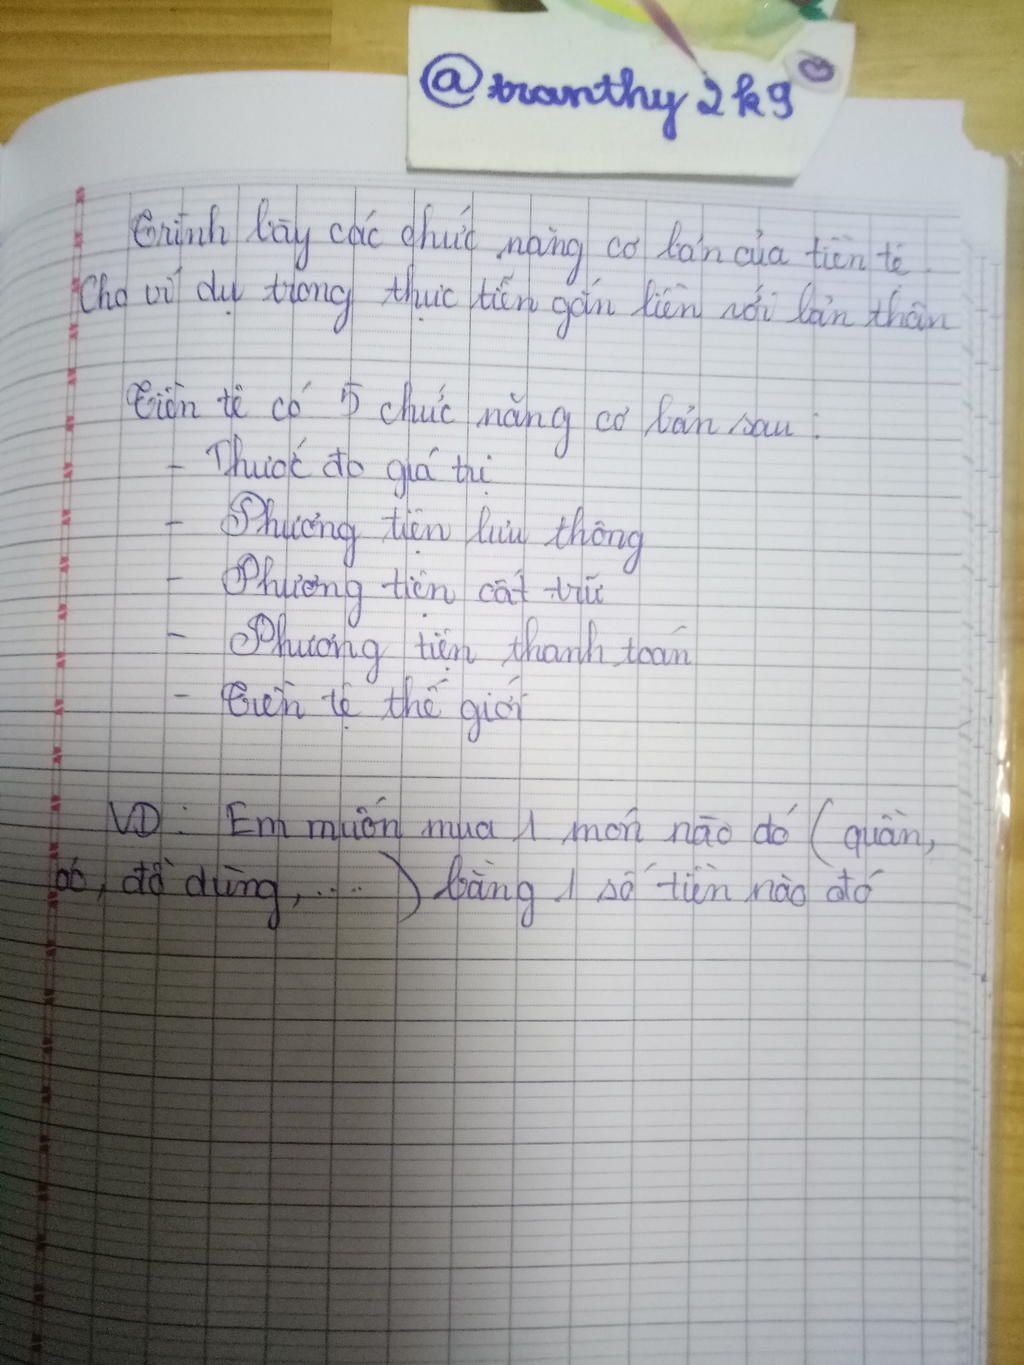 @tranthy2k9
Trình bày các chức năng cơ bản của tiền tệ.
Cho ví dụ trong thực tiễn gắn liền với bản thân
Tiền tệ có 5 chức năng cơ bản sau:
- Thước đo giá trị
- Phương tiện lưu thông
- Phương tiện cất trữ
- Phương tiện thanh toán
- Tiền tệ thế giới
VD: Em muốn mua 1 món nào đó (quần,
áo, đồ dùng, .....) bằng 1 số tiền nào đó